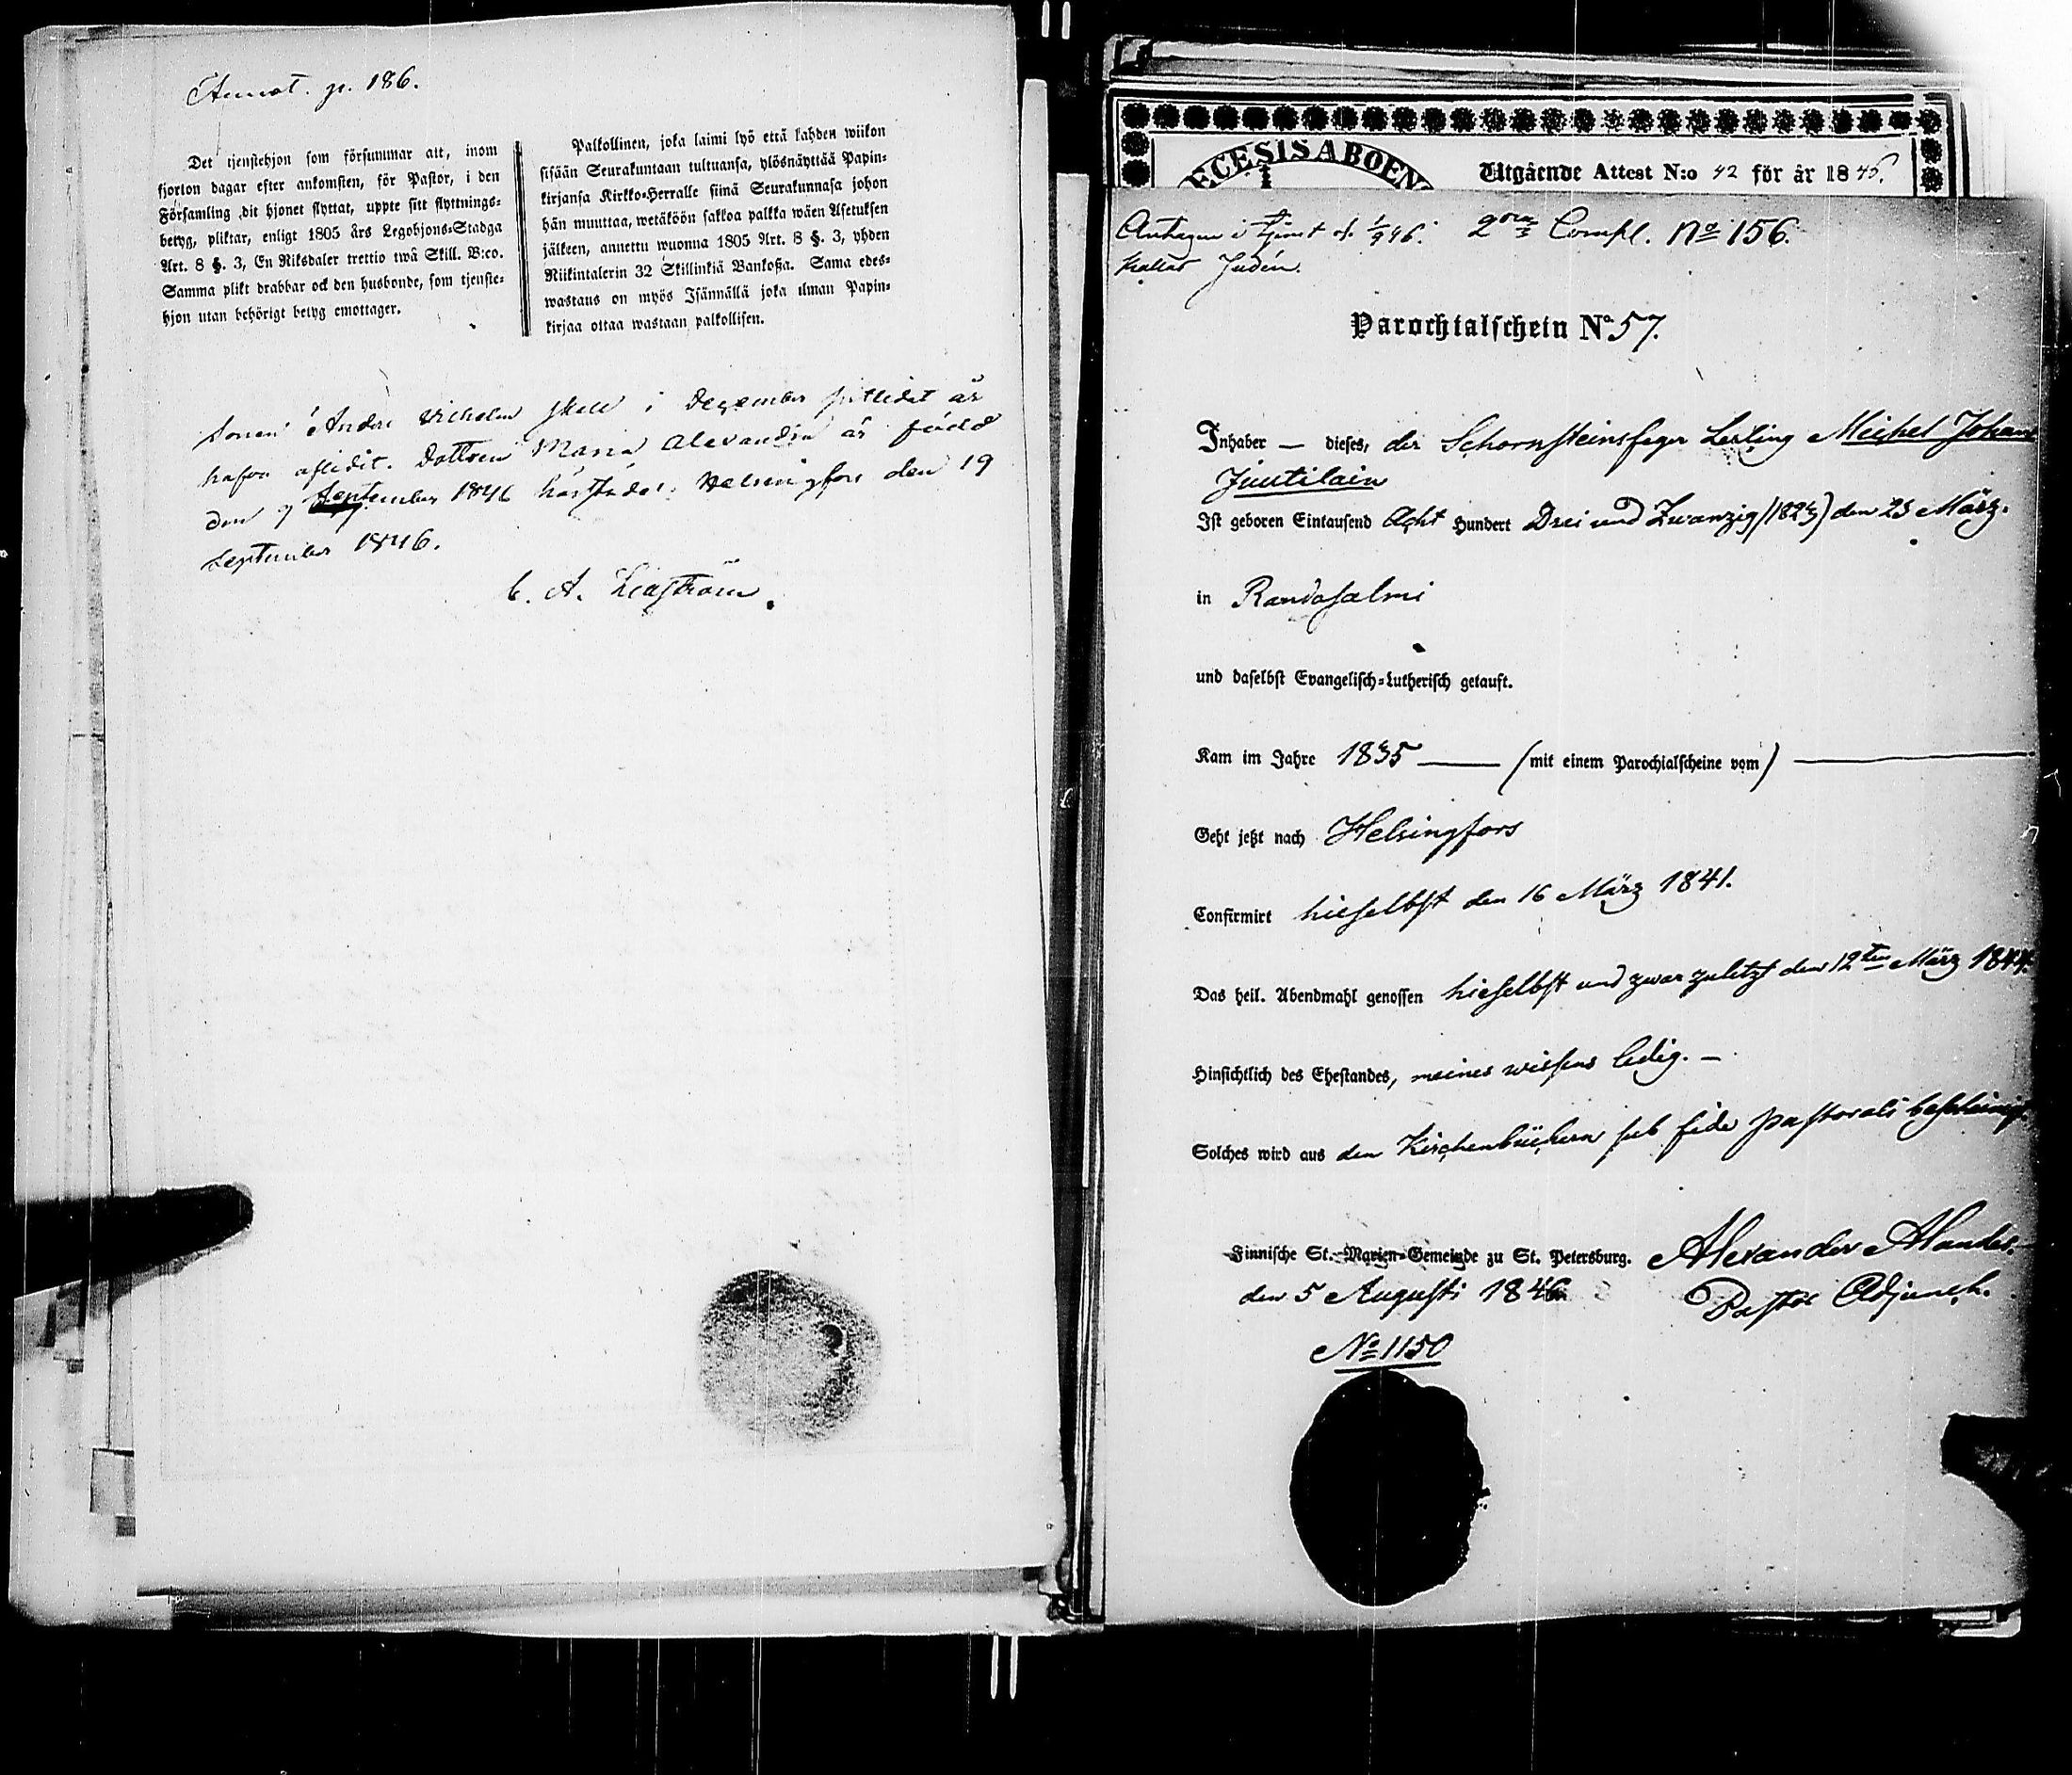 Annot. p. 186.
Det tjenstehjon som försummar att, inom
fjorton dagar efter ankomsten, för Pastor, i den
Församling dit hjonet flyttat, uppte sitt flyttnings-
betyg, pliktar, enligt 1805 års Legohjons-Stadga
Art. 8 §. 3, En Riksdaler trettio twå Skill. B:co.
Samma plikt drabbar ock den husbonde, som tjenste-
hjon utan behörigt betyg emottager.
Palkollinen, joka laimi lyö että kahden wiikon
sisään Seurakuntaan tultuansa, ylösnäyttää Papin-
kirjansa Kirkko-Herralle siinä Seurakunnasa johon
hän muuttaa, wetäköön sakkoa palkka wäen Asetuksen
jälkeen, annettu wuonna 1805 Art. 8 §. 3, yhden
Riikintalerin 32 Skillinkiä Bankossa. Sama edes-
wastaus on myös Isännällä joka ilman Papin-
kirjaa ottaa wastaan palkollisen.
Sonen Anders Vilhelm skall i December sistledet år
hafva aflidit. Dottren Maria Alexandra är född
den 9 September 1846 härstädes. Helsingfors den 19
September 1846.
C. A.
ECESIS ABOEN
Utgående Attest N:o 42 för år 1846.
Antagen i tjenst d. 1/9 46. 2 Compl. No 156.
kallas Judén.
Parochialschein No 57.
Inhaber — dieses, der Schornsteinsfeger Lerling Michel Johan
Juutilain
Ist geboren Eintausend Acht Hundert Drei und Zwanzig (1823) den 23 März.
in Randasalmi
und daselbst Evangelisch-Lutherisch getauft.
Kam im Jahre 1835 — (mit einem Parochialscheine vom) —
Geht jetzt nach Helsingfors
Confirmirt hieselbst den 16 März 1841.
Das heil. Abendmahl genossen hieselbst und zwar zuletzt den 12ten März 1844.
Hinsichtlich des Ehestandes, meines wissens ledig. —
Solches wird aus den Kirchenbüchern sub fide pastorali bescheinigt.
Finnische St.-Marien-Gemeinde zu St. Petersburg. Alexander
den 5 Augusti 1846. Pastor Adjunct.
No 1150